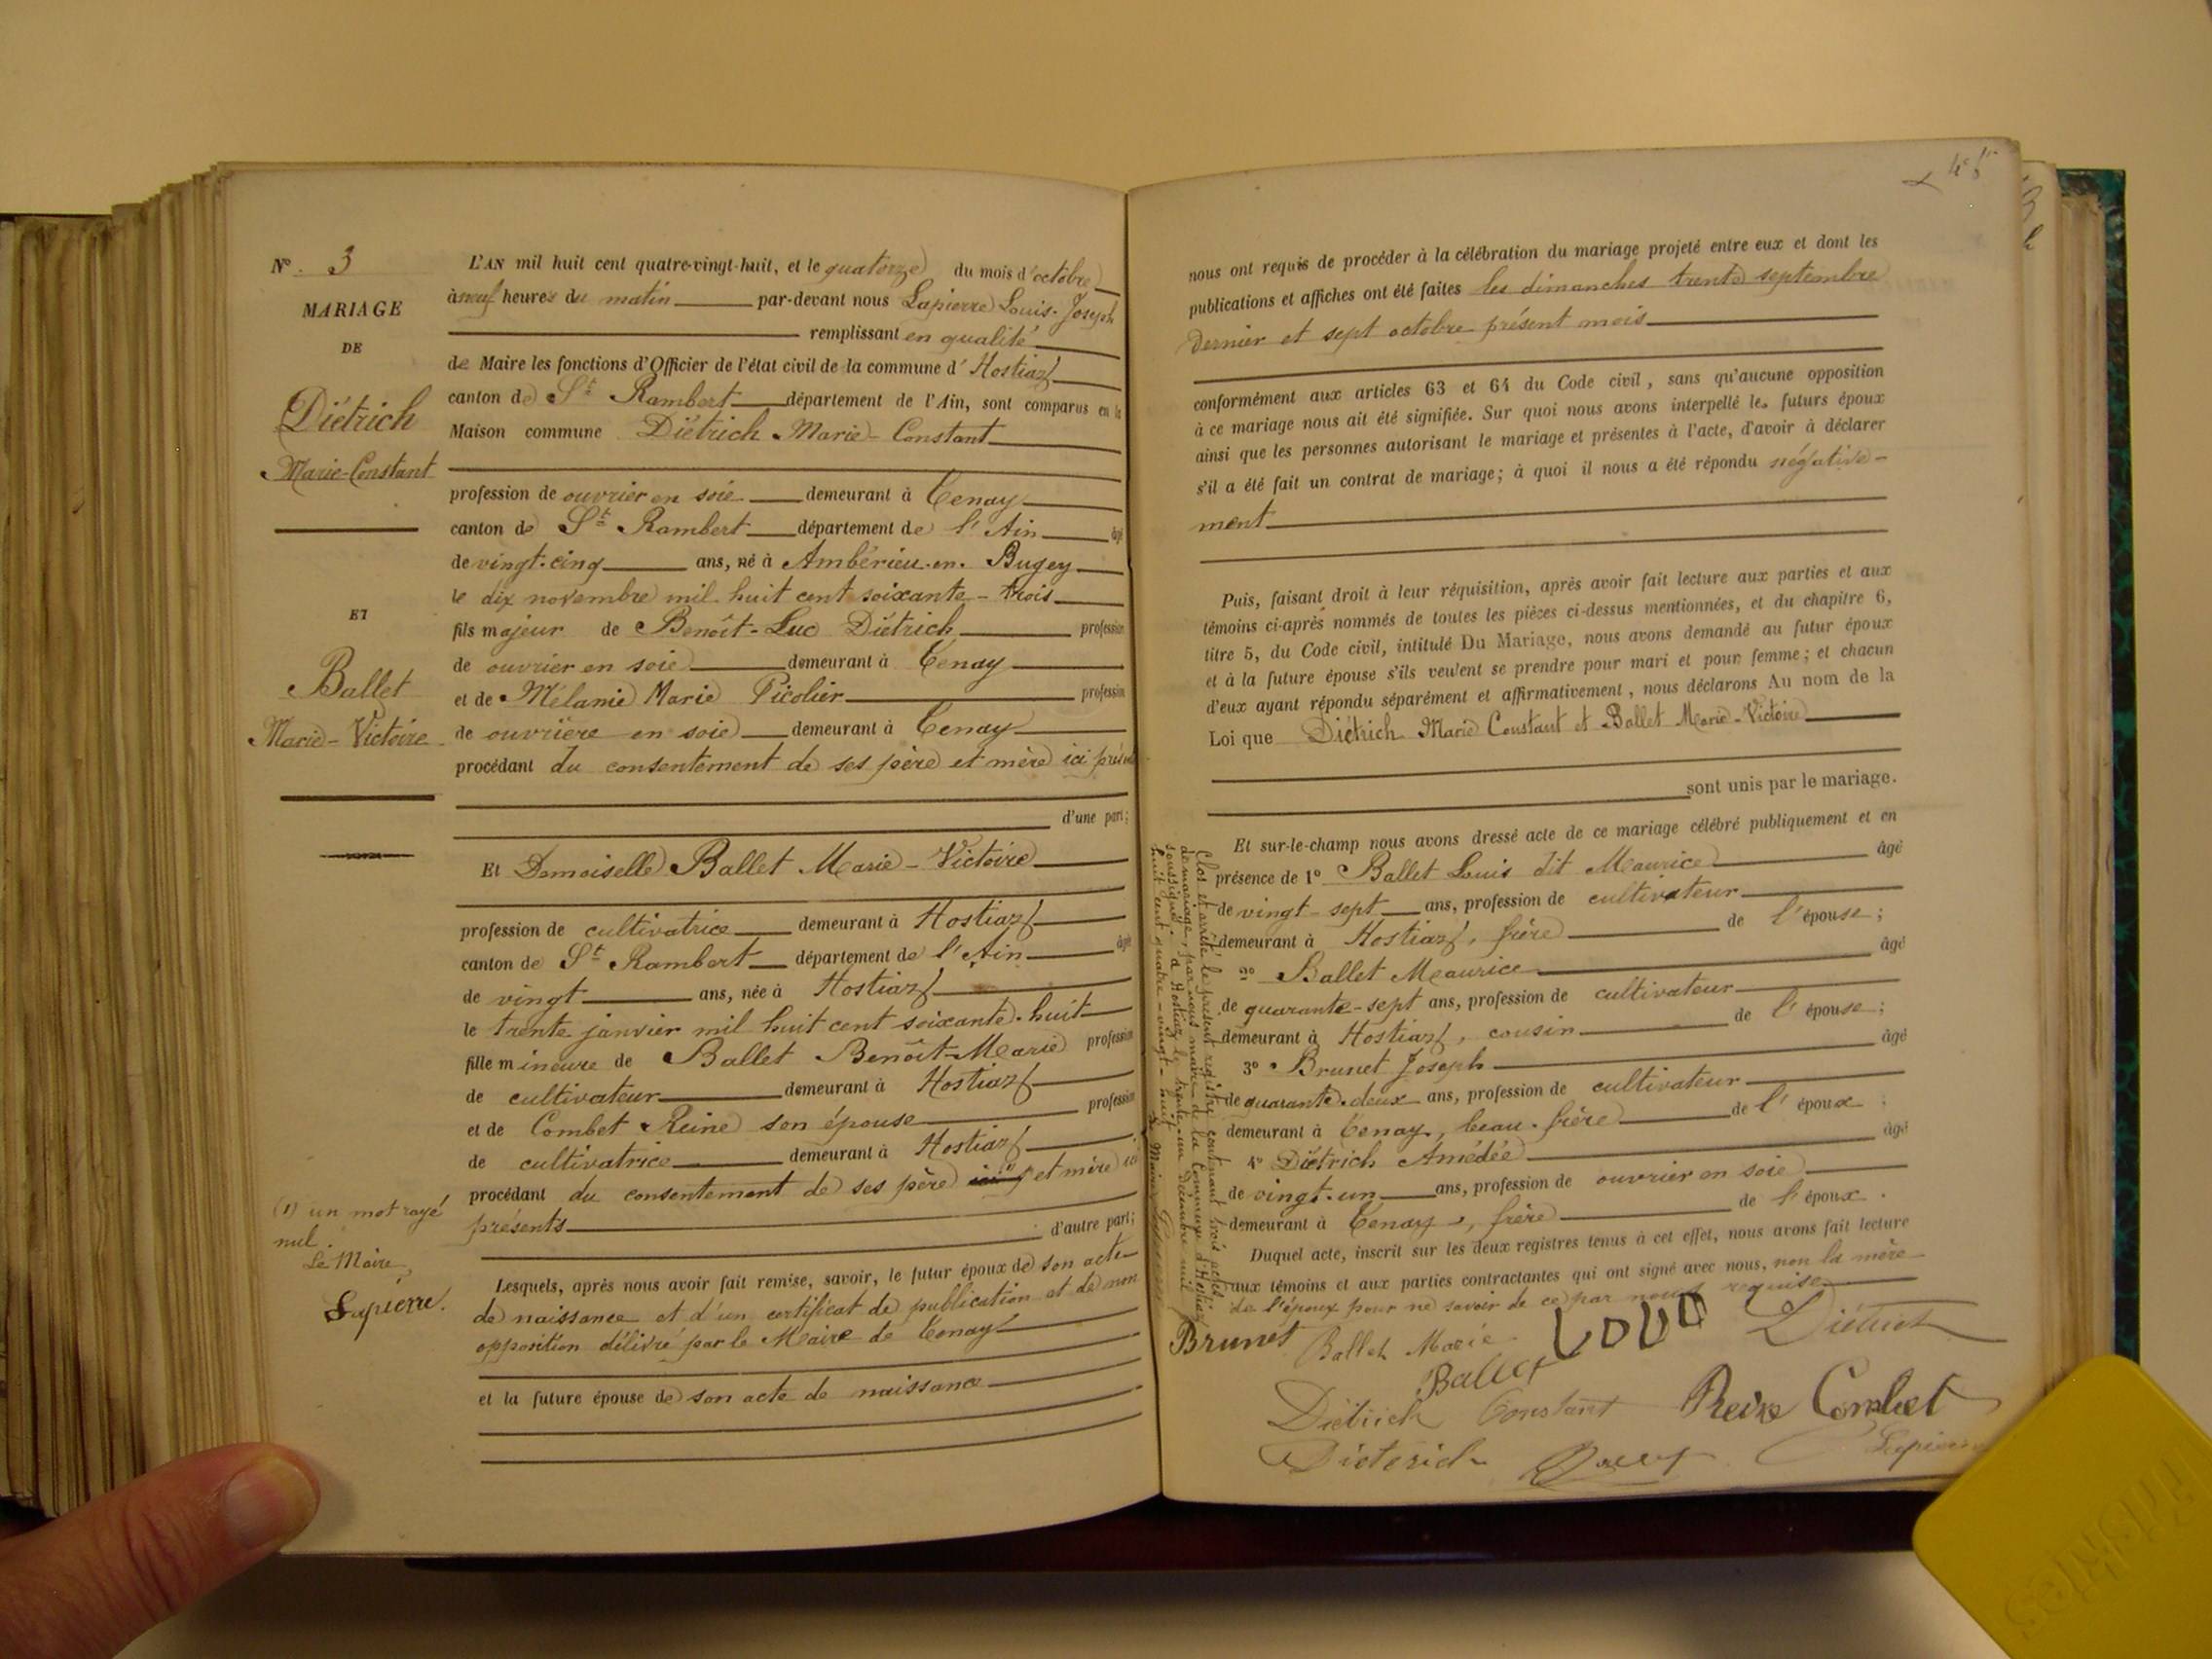 N° 3
MARIAGE
DE
Diétrich
Marie-Constant
ET
Ballet
Marie-Victoire
(1) un mot rayé
nul.
Le Maire,
Lapierre.
L'AN mil huit cent quatre-vingt-huit, et le quatorze du mois d'octobre
à neuf heures du matin par-devant nous Lapierre Louis-Joseph
remplissant en qualité
de Maire les fonctions d'Officier de l'état civil de la commune d'Hostiaz
canton de St Rambert département de l'Ain, sont comparus en la
Maison commune Diétrich Marie-Constant
profession de ouvrier en soie demeurant à Tenay
canton de St Rambert département de l'Ain âgé
de vingt-cinq ans, né à Ambérieu-en-Bugey
le dix novembre mil huit cent soixante-trois
fils majeur de Benoît-Luc Diétrich profession
de ouvrier en soie demeurant à Tenay
et de Mélanie Marie Picolier profession
de ouvrière en soie demeurant à Tenay
procédant du consentement de ses père et mère ici
d'une part;
Et Demoiselle Ballet Marie-Victoire
profession de cultivatrice demeurant à Hostiaz
canton de St Rambert département de l'Ain âgé
de vingt ans, née à Hostiaz
le trente janvier mil huit cent soixante-huit
fille mineure de Ballet Benoît-Marie profession
de cultivateur demeurant à Hostiaz
et de Combet Reine son épouse profession
de cultivatrice demeurant à Hostiaz
procédant du consentement de ses père et mère ici
présents d'autre part;
Lesquels, après nous avoir fait remise, savoir, le futur époux de son acte
de naissance et d'un certificat de publication et de non
opposition délivré par le Maire de Tenay
et la future épouse de son acte de naissance
nous ont requis de procéder à la célébration du mariage projeté entre eux et dont les
publications et affiches ont été faites les dimanches trente septembre
dernier et sept octobre présent mois
conformément aux articles 63 et 64 du Code civil, sans qu'aucune opposition
à ce mariage nous ait été signifiée. Sur quoi nous avons interpellé les futurs époux
ainsi que les personnes autorisant le mariage et présentes à l'acte, d'avoir à déclarer
s'il a été fait un contrat de mariage; à quoi il nous a été répondu négative-
ment
Puis, faisant droit à leur réquisition, après avoir fait lecture aux parties et aux
témoins ci-après nommés de toutes les pièces ci-dessus mentionnées, et du chapitre 6,
titre 5, du Code civil, intitulé Du Mariage, nous avons demandé au futur époux
et à la future épouse s'ils veulent se prendre pour mari et pour femme; et chacun
d'eux ayant répondu séparément et affirmativement, nous déclarons Au nom de la
Loi que Diétrich Marie Constant et Ballet Marie-Victoire
sont unis par le mariage.
Et sur-le-champ nous avons dressé acte de ce mariage célébré publiquement et en
présence de 1° Ballet Louis dit Maurice âgé
de vingt-sept ans, profession de cultivateur
demeurant à Hostiaz, frère de l'épouse;
2° Ballet Maurice âgé
de quarante-sept ans, profession de cultivateur
demeurant à Hostiaz, cousin de l'épouse;
3° Brunet Joseph âgé
de quarante-deux ans, profession de cultivateur
demeurant à Tenay, beau-frère de l'époux;
4° Diétrich Amédée âgé
de vingt-un ans, profession de ouvrier en soie
demeurant à Tenay, frère de l'époux.
Duquel acte, inscrit sur les deux registres tenus à cet effet, nous avons fait lecture
aux témoins et aux parties contractantes qui ont signé avec nous, non la mère
de l'époux pour ne savoir de ce par nous requise
Clos et arrêté le présent registre contenant trois actes
de mariage, par nous maire de la commune d'Hostiaz
soussigné, à Hostiaz le trente-un décembre mil
huit cent quatre-vingt-huit
Le Maire, Lapierre
Brunet Ballet Marie
Ballet
Diétrich Constant Reine Combet
Dieterich Lapierre